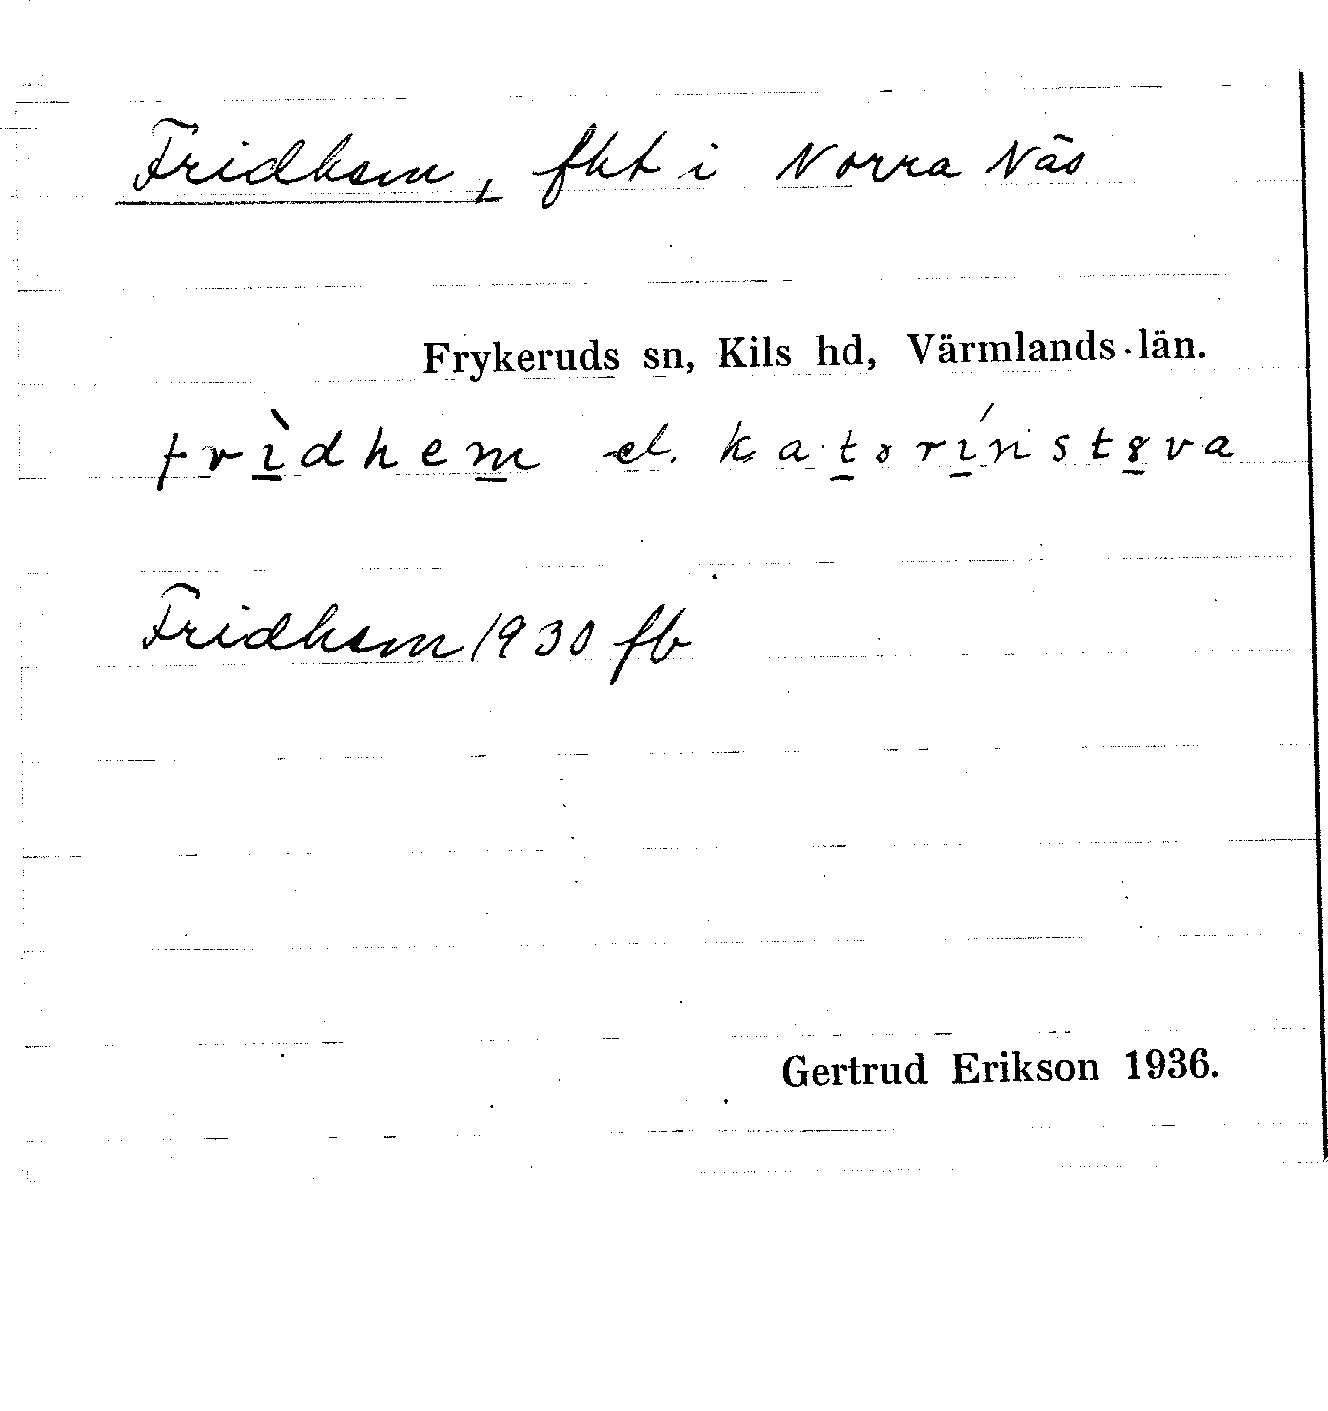 Fridhem, fht i Norra Näs
Frykeruds sn, Kils hd, Värmlands län.
frìdhem el. katərínstɞva
Fridhem 1930 fb
Gertrud Erikson 1936.